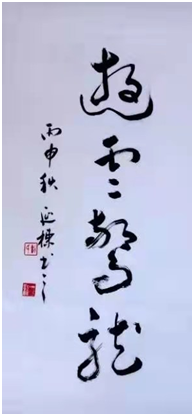 遊雲驚龍
丙申秋 書之